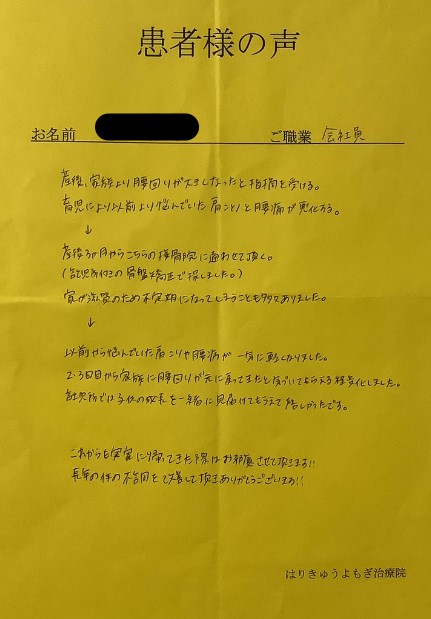 患者様の声
お名前
ご職業 会社員
産後、家族より腰回りが大きくなったと指摘を受ける。
育児により以前より悩んでいた肩こりと腰痛が悪化する。
↓
産後3か月からこちらの接骨院に通わせて頂く。
(託児所付きの骨盤矯正で探しました。)
家が遠方のため不定期になってしまうことも多々ありました。
↓
以前から悩んでいた肩こりや腰痛が一気に軽くなりました。
2.3回目から家族に腰回りが元に戻ってきたと気づいてもらえる程変化しました。
託児所では子供の成長を一緒に見届けてもらえて嬉しかったです。
これからも実家に帰ってきた際はお邪魔させて頂きます!!
長年の体の不調を改善して頂きありがとうございます!!
はりきゅうよもぎ治療院